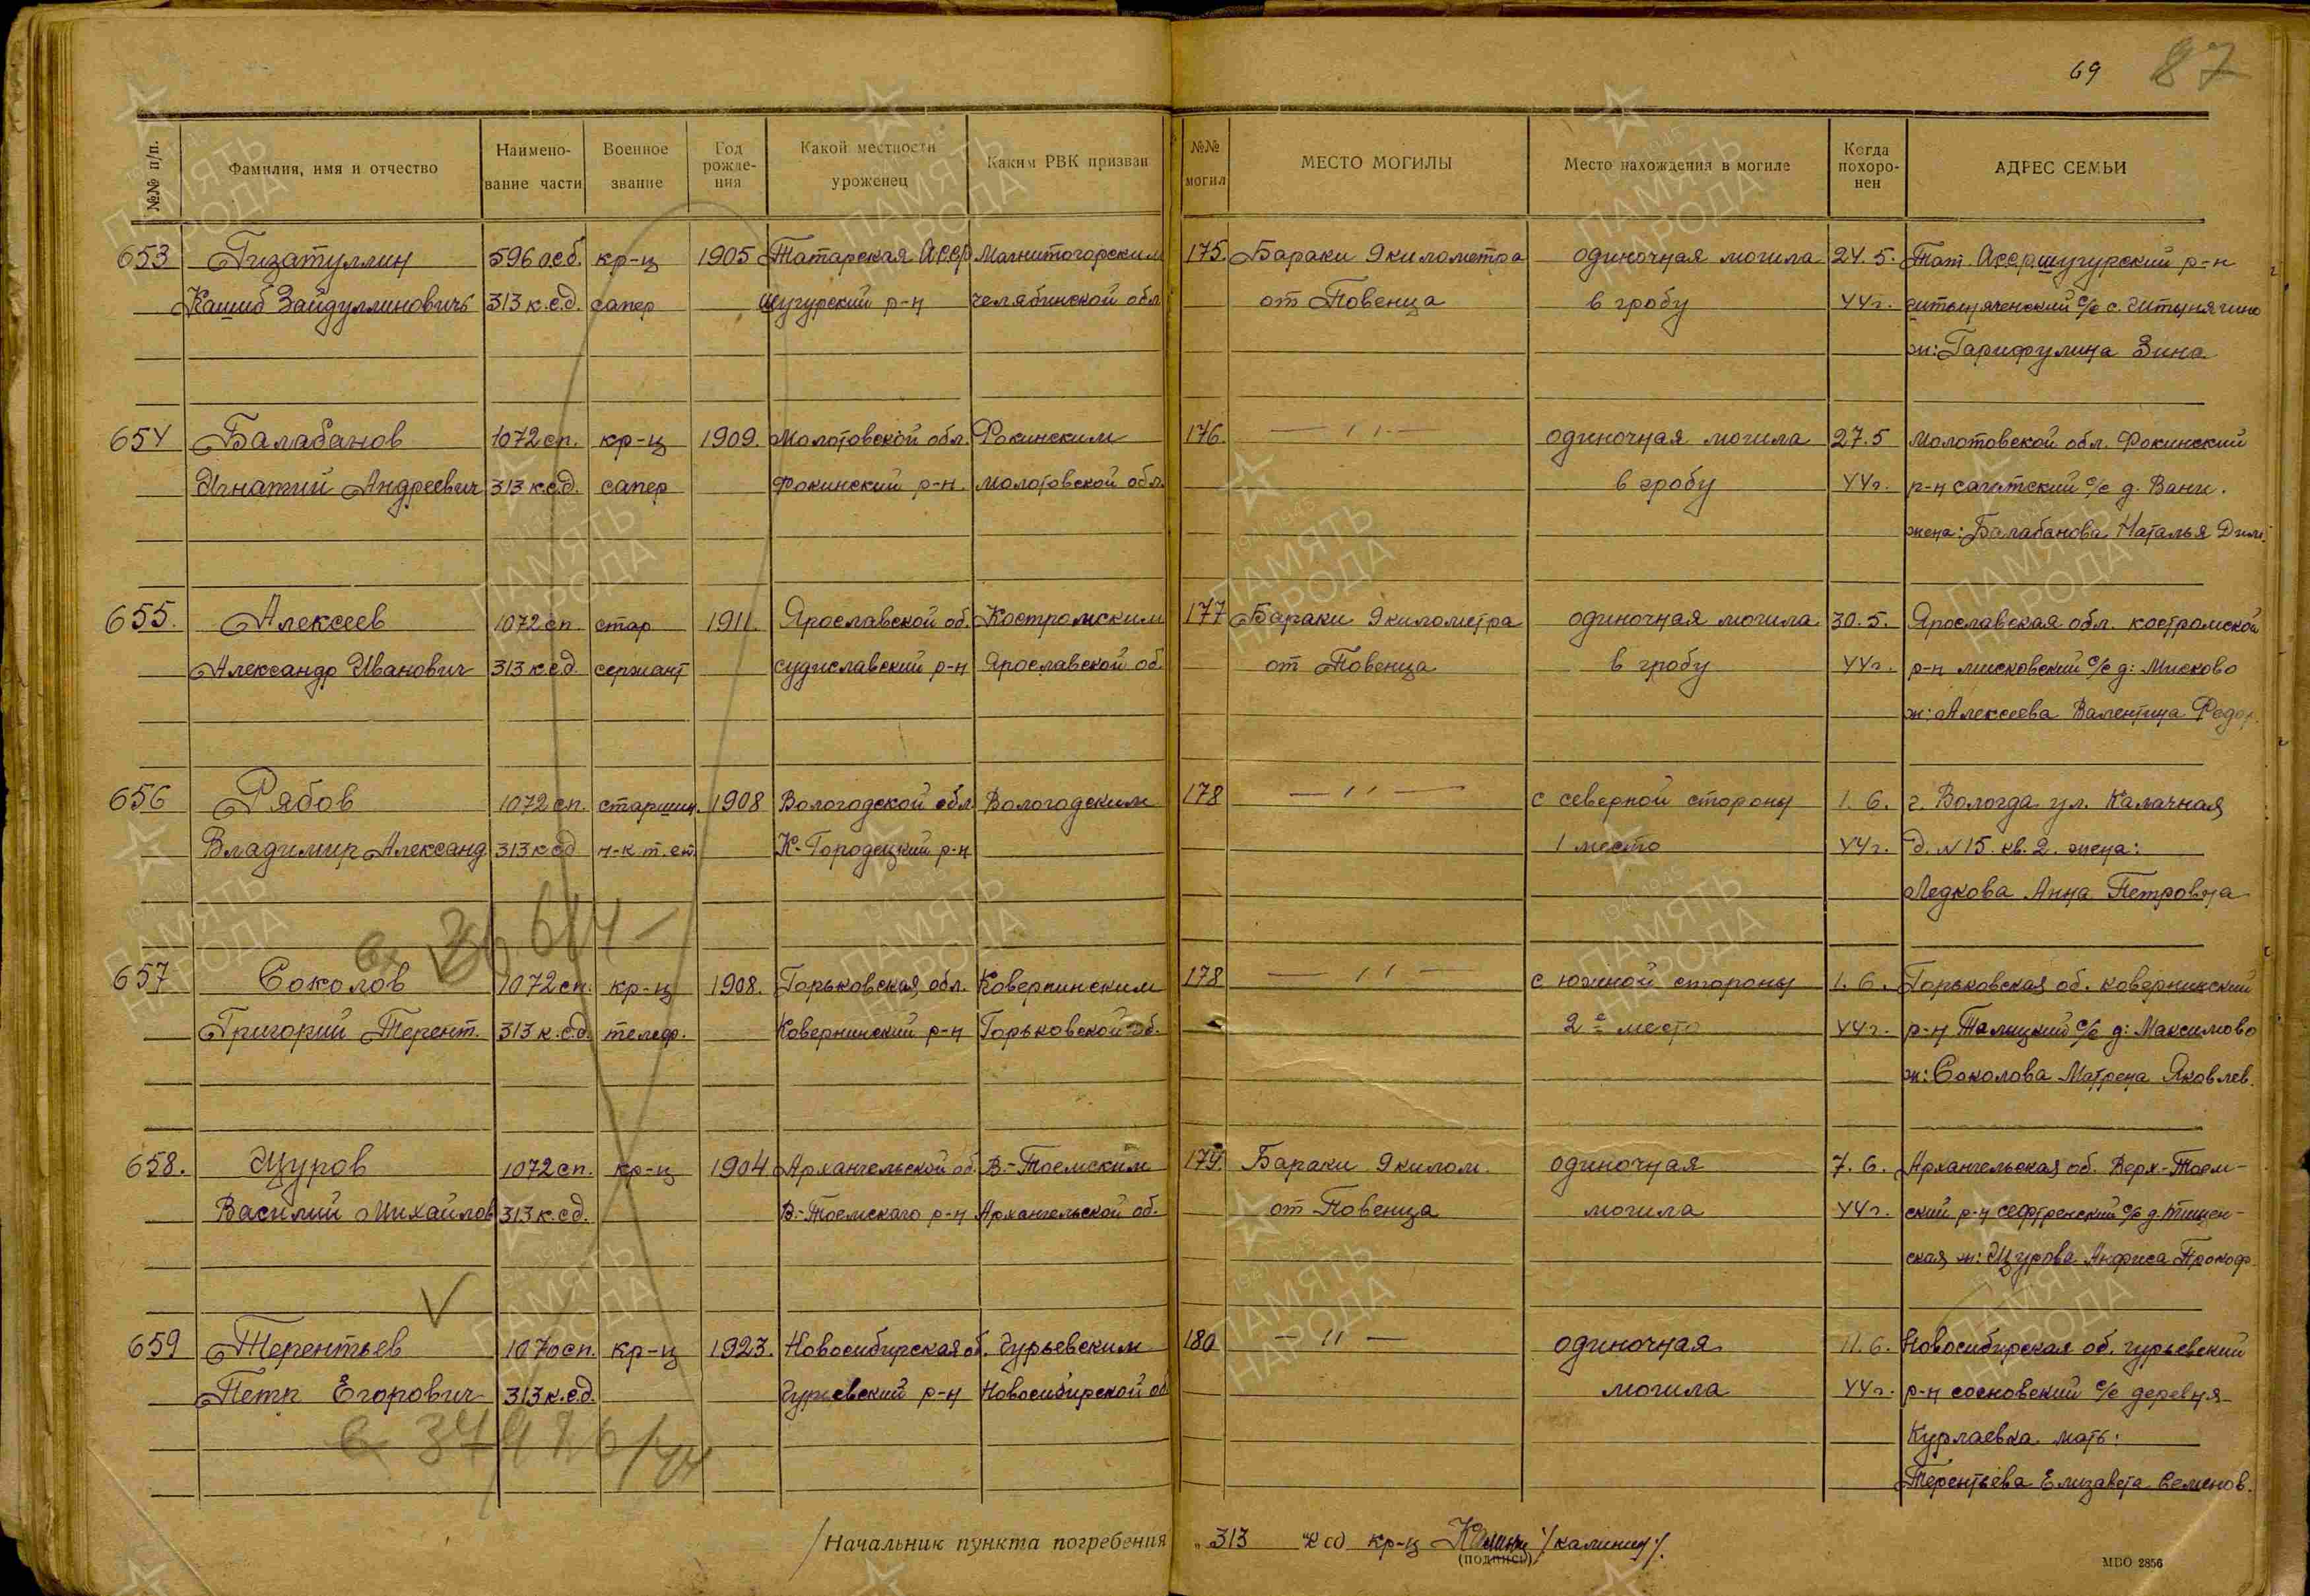 69 87
№№ п/п. Фамилия, имя и отчество Наимено- Военное Год Какой местности Каким РВК призван №№ МЕСТО МОГИЛЫ Место нахождения в могиле Когда АДРЕС СЕМЬИ
вание части звание рожде- уроженец могил похоро-
ния нен
653 Гизатуллин 596 осб. кр-ц 1905 Татарская Асср Магнитогорским 175. Бараки 9 километра одиночная могила 24.5. Тат. Асср шугурский р-н
Кашиб Зайдуллиновичь 313 к.с.д. сапер шугурский р-н челябинской обл от Повенца в гробу 44г. с/с с.
ж: Гарифулина Зина
654 Балабанов 1072 сп. кр-ц 1909. Молотовской обл. Фокинским 176. — 11 — одиночная могила 27.5 Молотовской обл. Фокинский
Игнатий Андреевич 313 к.с.д. сапер Фокинский р-н. Молотовской обл. в гробу 44г. р-н сагатский с/с д. Ванч.
жена: Балабанова Наталья Дим.
655. Алексеев 1072 сп стар 1911. Ярославской об. Костромским 177 Бараки 9 километра одиночная могила 30.5. Ярославская обл. костромской
Александр Иванович 313 к.с.д. сержант судиславский р-н Ярославской об. от Повенца в гробу 44г. р-н мисковский с/с д: Мисково
ж: Алексеева Валентина Федор.
656 Рябов 1072 сп. старшин. 1908 Вологодской обл Вологодским 178 — 11 — с северной стороны 1.6. г. Вологда ул. Калачная
Владимир Александ 313 к с д н-к т. ст. К-Городецкий р-н 1 место 44г. д. N 15. кв. 2. жена:
Ледкова Анна Петровна
657 Соколов 1072 сп. кр-ц 1908. Горьковская обл. Ковернинским 178 — 11 — с южной стороны 1.6. Горьковская об. ковернинский
Григорий Терент. 313 к.с.д. телеф. Ковернинский р-н Горьковской об. 2е место 44г. р-н Талицкий с/с д: Максимово
ж: Соколова Матрена Яковлев.
658. Щуров 1072 сп. кр-ц 1904 Архангельской об. В.-Тоемским 179 Бараки 9 килом. одиночная 7.6. Архангельская об. Верх-Тоем-
Василий Михайлов 313 к.с.д. В.-Тоемскаго р-н Архангельской об. от Повенца могила 44г. ский р-н сефтренский с/с д.
ская ж: Щурова Анфиса Прокоф
659 Терентьев 1070 сп. кр-ц 1923. Новосибирская об. Гурьевским 180 — 11 — одиночная 11.6. Новосибирская об. гурьевский
Петр Егорович 313 к.с.д. Гурьевский р-н Новосибирской об могила 44г. р-н сосновский с/с деревня
Курлаевка мать:
Терентьева Елизавета Семенов.
/Начальник пункта погребения „313 ксд кр-ц /калинин/.
(подпись)
МВО 2856